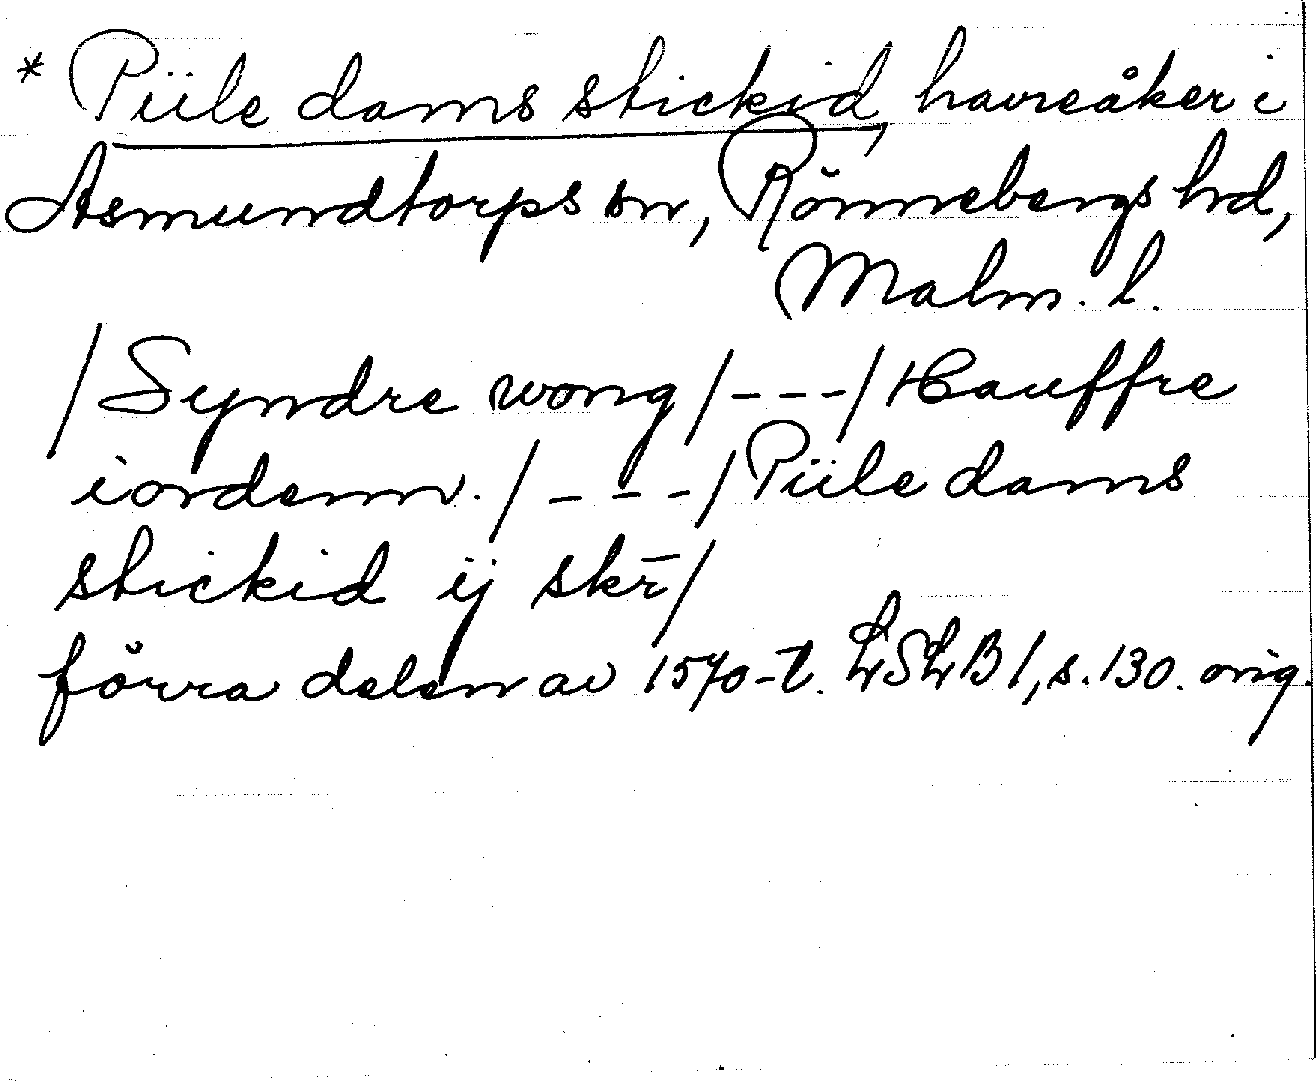 * Piile dams stickid, havreåker i
Asmundtorps sn, Rönnebergs hd,
Malm. l.
/Syndre wong/---/Hauffre
iordenn./---/Piile dams
stickid ij skr̄/
förra delen av 1570-t. LSLB 1, s. 130. orig.